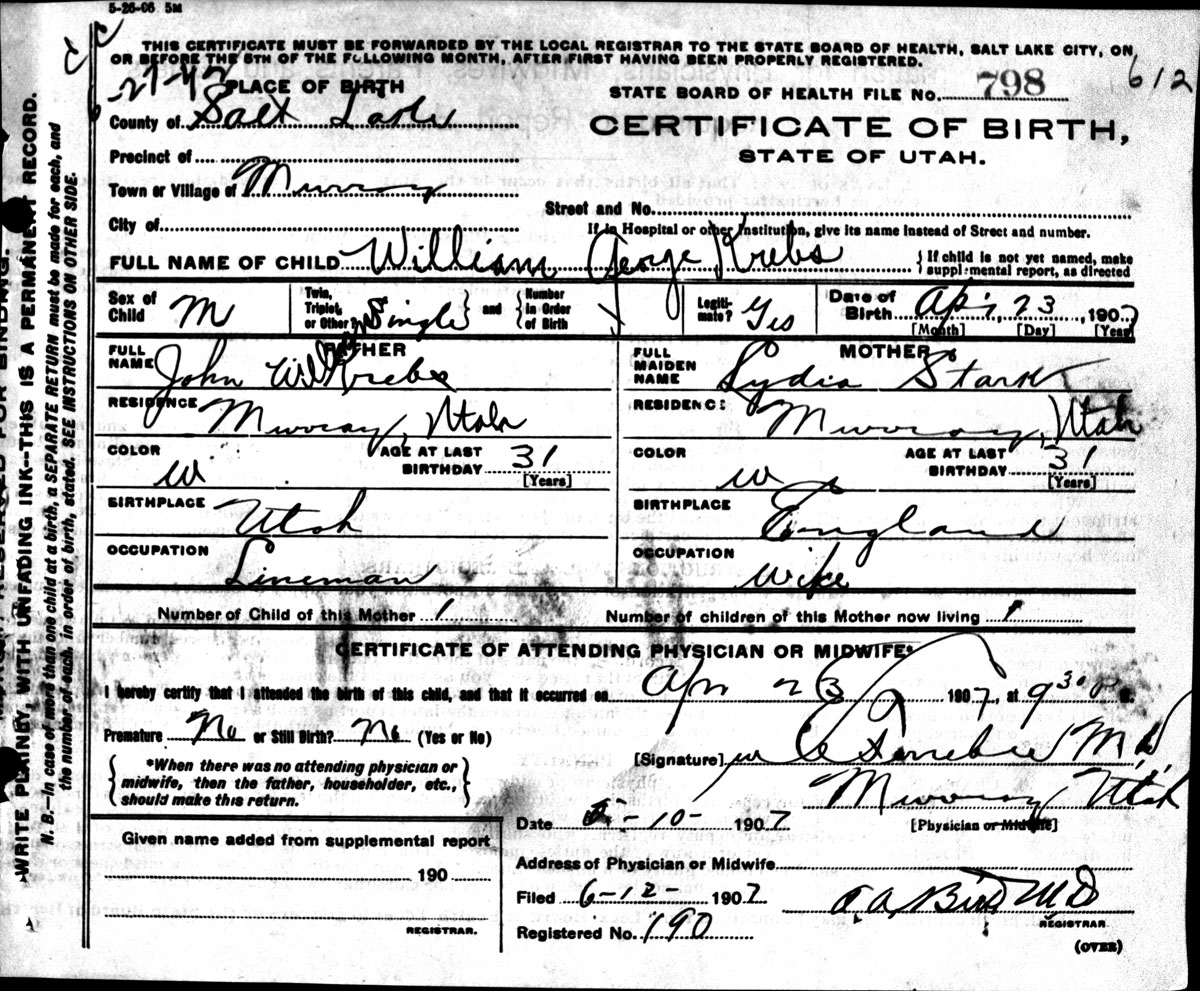 5-26-06 5M
THIS CERTIFICATE MUST BE FORWARDED BY THE LOCAL REGISTRAR TO THE STATE BOARD OF HEALTH, SALT LAKE CITY, ON
OR BEFORE THE 5TH OF THE FOLLOWING MONTH, AFTER FIRST HAVING BEEN PROPERLY REGISTERED.
PLACE OF BIRTH
STATE BOARD OF HEALTH FILE NO. 798
612
County of Salt Lake
CERTIFICATE OF BIRTH,
STATE OF UTAH.
Precinct of
Town or Village of Murray
Street and No.
City of
If in Hospital or other Institution, give its name instead of Street and number.
FULL NAME OF CHILD William George Krebs
{ If child is not yet named, make
supplemental report, as directed
Sex of Child M
Twin, Triplet, or Other? Single } and { Number in Order of Birth
Legitimate? Yes
Date of Birth Apr, 23, 1907
[Month] [Day] [Year]
FATHER
FULL NAME John Krebs
RESIDENCE Murray, Utah
COLOR W
AGE AT LAST BIRTHDAY 31
[Years]
BIRTHPLACE Utah
OCCUPATION Lineman
MOTHER
FULL MAIDEN NAME Lydia Stark
RESIDENCE Murray, Utah
COLOR W
AGE AT LAST BIRTHDAY 31
[Years]
BIRTHPLACE England
OCCUPATION Wife
Number of Child of this Mother 1
Number of children of this Mother now living 1
CERTIFICATE OF ATTENDING PHYSICIAN OR MIDWIFE*
I hereby certify that I attended the birth of this child, and that it occurred on Apr 23 1907, at 9 30 P M.
Premature No or Still Birth? No (Yes or No)
{ *When there was no attending physician or
midwife, then the father, householder, etc.,
should make this return. }
[Signature] M.D.
Murray Utah
[Physician or Midwife]
Date 5-10-1907
Given name added from supplemental report
190
REGISTRAR.
Address of Physician or Midwife
Filed 6-12-1907
Registered No. 190
Bird MD
REGISTRAR
(OVER)
MARGIN RESERVED FOR BINDING.
WRITE PLAINLY, WITH UNFADING INK--THIS IS A PERMANENT RECORD.
N. B.--In case of more than one child at a birth, a SEPARATE RETURN must be made for each, and
the number of each, in order of birth, stated. SEE INSTRUCTIONS ON OTHER SIDE.